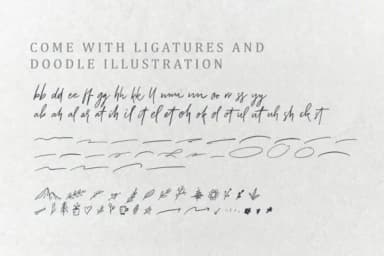 COME WITH LIGATURES AND
DOODLE ILLUSTRATION
bb dd ee ff gg hh kk ll mm nn oo rr ss yy
ab ah al as at ch il it el et oh ok ol ot ul ut uh sh ck st